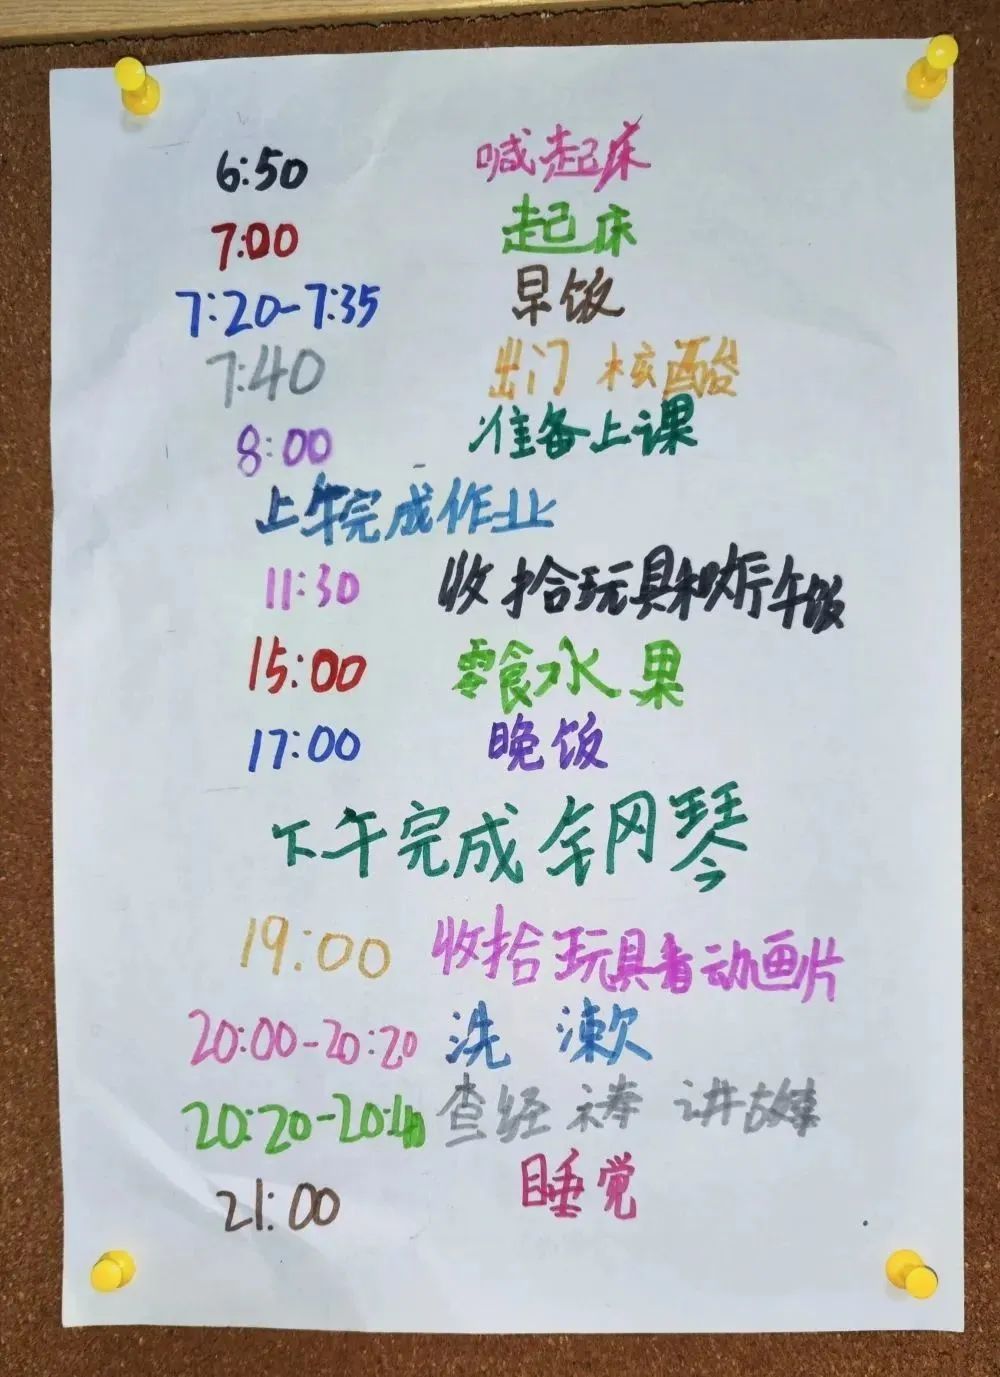 6:50 喊起床
7:00 起床
7:20-7:35 早饭
7:40 出门 核酸
8:00 准备上课
上午完成作业
11:30 收拾玩具和 午饭
15:00 零食水果
17:00 晚饭
下午完成钢琴
19:00 收拾玩具看动画片
20:00-20:20 洗 漱
20:20-20:40 查经 祷 讲故事
21:00 睡觉